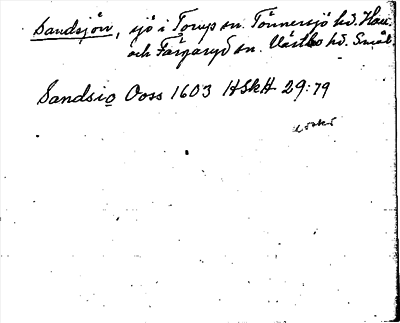 Sandsjön, sjö i Torups sn. Tönnersjö hd. Hall.
och Färgaryd sn. Västbo hd. Smål.
Sandsio Ooss 1603 HSkH 29:79